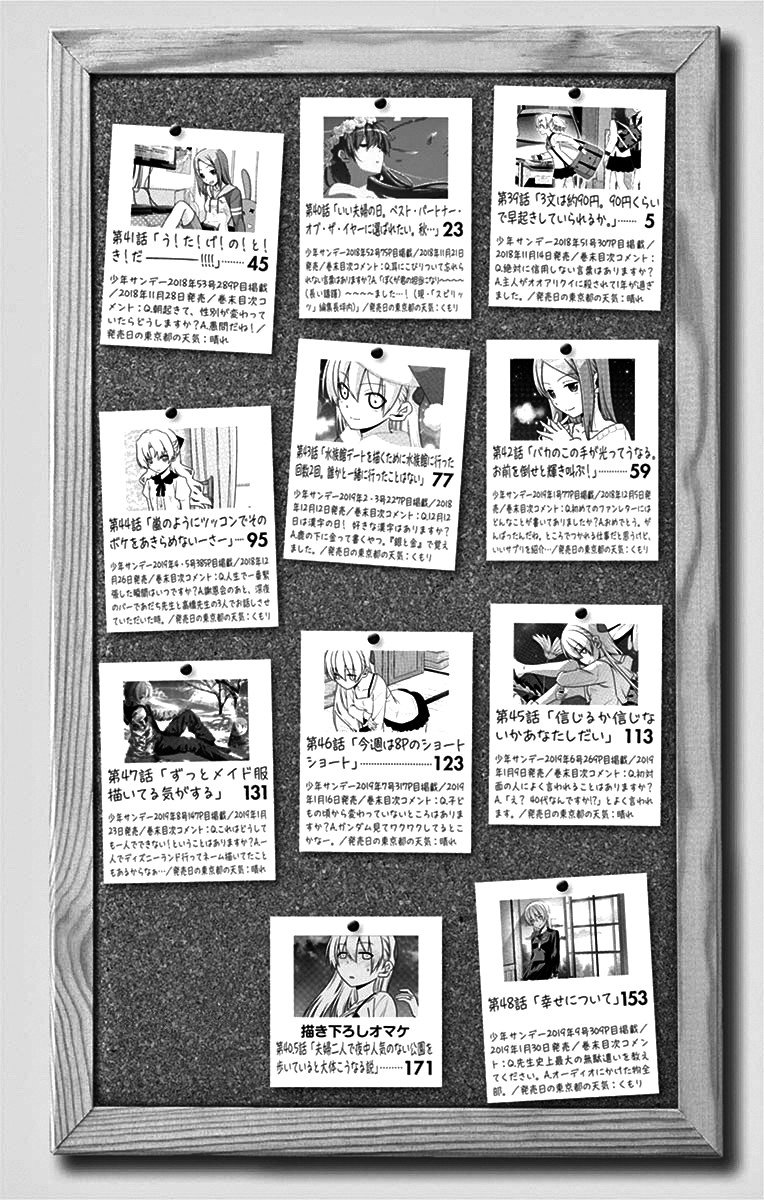 第39話「3文は約90円。90円くらい
で早起きしていられるか。」…… 5
少年サンデー2018年51号307P目掲載/
2018年11月14日発売/巻末目次コメント:
Q.絶対に信用しない言葉はありますか?
A.主人がオオアリクイに殺されて1年が過ぎ
ました。/発売日の東京都の天気:晴れ
第40話「いい夫婦の日。ベスト・パートナー・
オブ・ザ・イヤーに選ばれたい。秋…」23
少年サンデー2018年52号75P目掲載/2018年11月21日
発売/巻末目次コメント:Q.耳にこびりついて忘れら
れない言葉はありますか?A.「ぼくが君の担当になり〜〜〜〜
(長い講釈)〜〜〜〜ました…!(現・「スピリッ
ツ」編集長坪内)」/発売日の東京都の天気:くもり
第41話「う!た!げ!の!と!
き!だ――――!!!!」…… 45
少年サンデー2018年53号289P目掲載
/2018年11月28日発売/巻末目次コ
メント:Q.朝起きて、性別が変わってい
たらどうしますか?A.愚問だね!/
発売日の東京都の天気:晴れ
第42話「バカのこの手が光ってうなる。
お前を倒せと輝き叫ぶ!」……… 59
少年サンデー2019年1号77P目掲載/2018年12月5日発
売/巻末目次コメント:Q.初めてのファンレターには
どんなことが書いてありましたか?A.おめでとう。が
んばったんだね。ところでつかれる仕事だと思うけど、
いいサプリを紹介…/発売日の東京都の天気:くもり
第43話「水族館デートを描くために水族館に行った
回数2回。誰かと一緒に行ったことはない」 77
少年サンデー2019年2・3号227P目掲載/2018
年12月12日発売/巻末目次コメント:Q.12月12日
は漢字の日! 好きな漢字はありますか?
A.鹿の下に金って書くやつ。『銀と金』で覚え
ました。/発売日の東京都の天気:くもり
第44話「嵐のようにツッコンでその
ボケをあきらめないーさー」… 95
少年サンデー2019年4・5号385P目掲載/2018年12
月26日発売/巻末目次コメント:Q.人生で一番緊
張した瞬間はいつですか?A.謝恩会のあと、深夜
のバーであだち先生と高橋先生の3人でお話しさせ
ていただいた時。/発売日の東京都の天気:くもり
第45話「信じるか信じな
いかあなたしだい」 113
少年サンデー2019年6号269P目掲載/2019
年1月9日発売/巻末目次コメント:Q.初対
面の人によく言われることはありますか?
A.「え? 40代なんですか!?」とよく言われ
ます。/発売日の東京都の天気:晴れ
第46話「今週は8Pのショート
ショート」……………… 123
少年サンデー2019年7号317P目掲載/2019
年1月16日発売/巻末目次コメント:Q.子ど
もの頃から変わっていないところはあります
か?A.ガンダム見てワクワクしてるとこ
かなー。/発売日の東京都の天気:晴れ
第47話「ずっとメイド服
描いてる気がする」 131
少年サンデー2019年8号147P目掲載/2019年1月
23日発売/巻末目次コメント:Q.これはどうして
も一人でできない!ということはありますか?A.一
人でディズニーランド行ってネーム描いてたこと
もあるからなぁ…/発売日の東京都の天気:晴れ
第48話「幸せについて」153
少年サンデー2019年9号309P目掲載/
2019年1月30日発売/巻末目次コメン
ト:Q.先生史上最大の無駄遣いを教え
てください。A.オーディオにかけた物全
部。/発売日の東京都の天気:くもり
描き下ろしオマケ
第40.5話「夫婦二人で夜中人気のない公園を
歩いていると大体こうなる説」……… 171